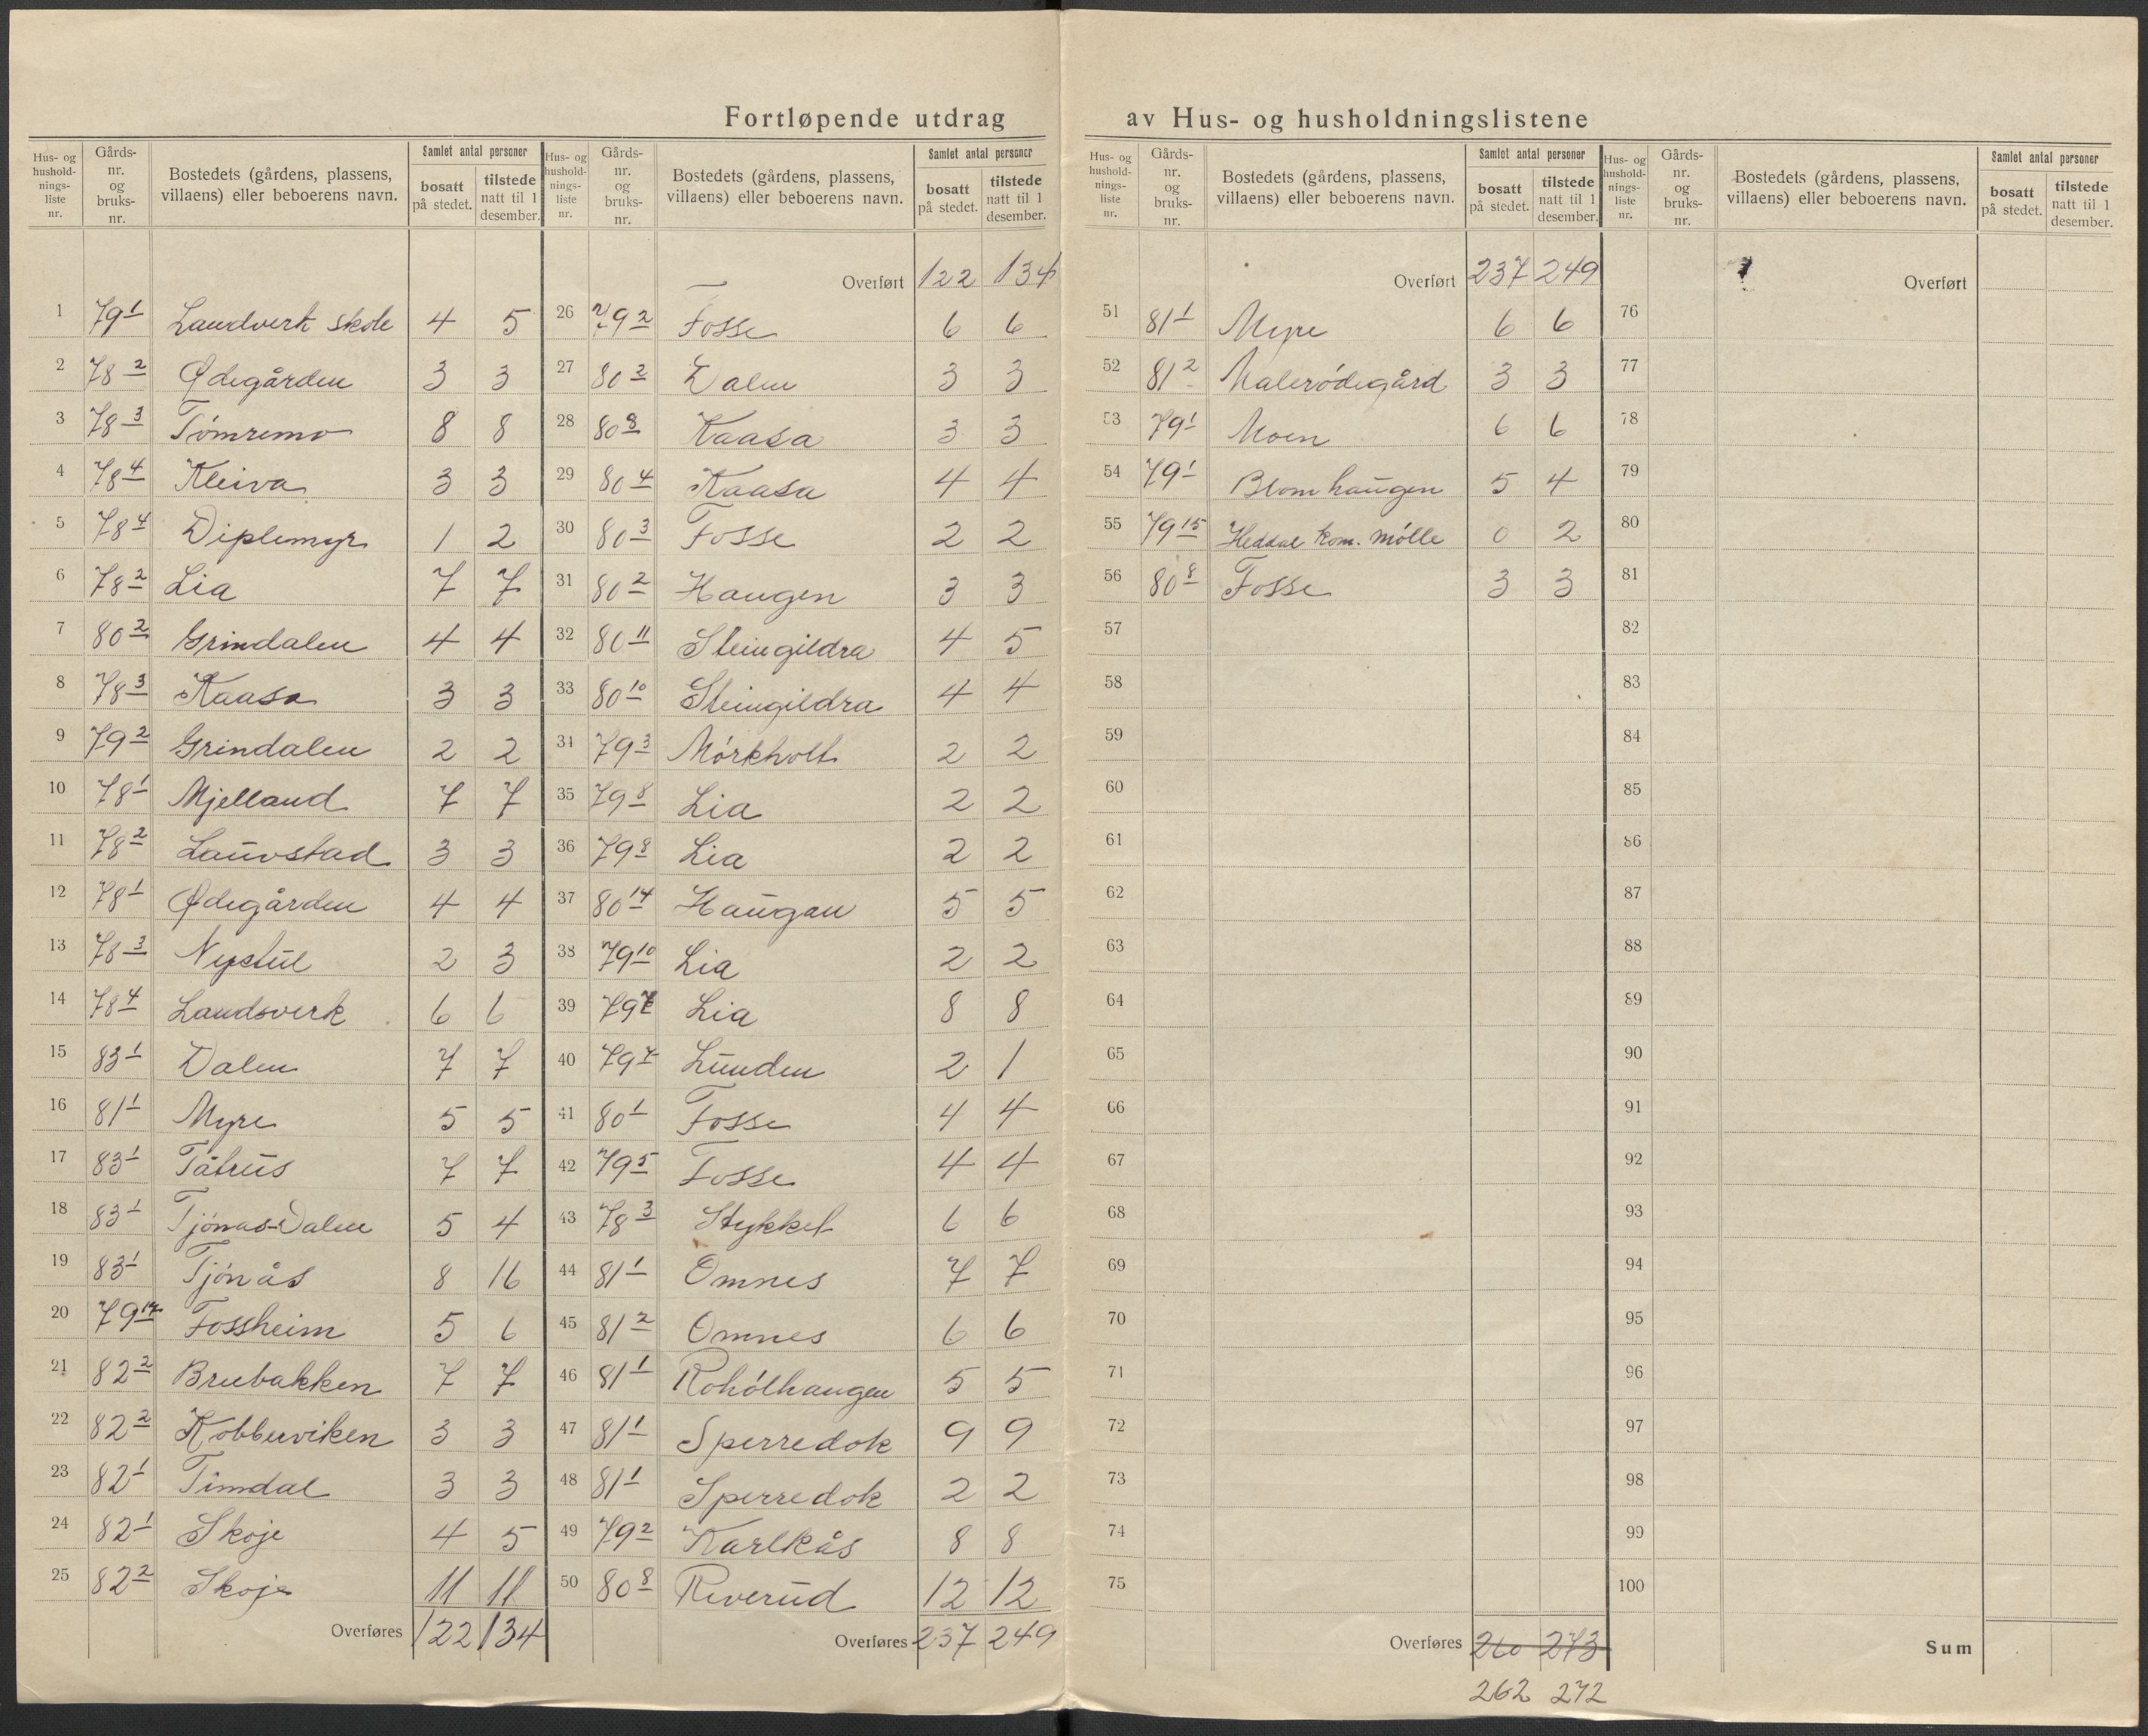 Fortløpende utdrag av Hus- og husholdningslistene
Hus- og husholdningsliste nr. | Gårds-nr. og bruks-nr. | Bostedets (gårdens, plassens, villaens) eller beboerens navn. | Samlet antal personer | bosatt på stedet. | tilstede natt til 1 desember.
1 79 1 Landverk skole 4 5
2 78 2 Ødegården 3 3
3 78 3 Tömremo 8 8
4 78 4 Kleiva 3 3
5 78 4 Diplemyr 1 2
6 78 2 Lia 7 7
7 80 2 Grindalen 4 4
8 78 3 Kaasa 3 3
9 79 2 Grindalen 2 2
10 78 1 Mjelland 7 7
11 78 2 Lauvstad 3 3
12 78 1 Ødegården 4 4
13 78 3 Nystul 2 3
14 78 4 Landsverk 6 6
15 83 1 Dalen 7 7
16 81 1 Myre 5 5
17 83 1 Tåtrus 7 7
18 83 1 Tjönas-Dalen 5 4
19 83 1 Tjönås 8 16
20 79 Fossheim 5 6
21 82 2 Brubakken 7 7
22 82 2 Kobberviken 3 3
23 82 1 Timdal 3 3
24 82 1 Skoje 4 5
25 82 2 Skoje 11 11
Overføres 122 134
Hus- og husholdningsliste nr. | Gårds-nr. og bruks-nr. | Bostedets (gårdens, plassens, villaens) eller beboerens navn. | Samlet antal personer | bosatt på stedet. | tilstede natt til 1 desember.
Overført 122 134
26 79 2 Fosse 6 6
27 80 2 Dalen 3 3
28 80 8 Kaasa 3 3
29 80 4 Kaasa 4 4
30 80 3 Fosse 2 2
31 80 2 Haugen 3 3
32 80 11 Steingildra 4 5
33 80 10 Steingildra 4 4
34 79 3 Mörkholt 2 2
35 79 8 Lia 2 2
36 79 8 Lia 2 2
37 80 14 Haugan 5 5
38 79 10 Lia 2 2
39 79 Lia 8 8
40 79 7 Lunden 2 1
41 80 1 Fosse 4 4
42 79 5 Fosse 4 4
43 78 3 Stykket 6 6
44 81 1 Omnes 7 7
45 81 2 Omnes 6 6
46 81 1 Rohólhaugen 5 5
47 81 1 Sperredok 9 9
48 81 1 Sperredok 2 2
49 79 2 Karlkås 8 8
50 80 8 Riverud 12 12
Overføres 237 249
Hus- og husholdningsliste nr. | Gårds-nr. og bruks-nr. | Bostedets (gårdens, plassens, villaens) eller beboerens navn. | Samlet antal personer | bosatt på stedet. | tilstede natt til 1 desember.
Overført 237 249
51 81 1 Myre 6 6
52 81 2 Malerödegård 3 3
53 79 1 Moen 6 6
54 79 1 Blomhaugen 5 4
55 79 15 Heddal kom. mölle 0 2
56 80 8 Fosse 3 3
57
58
59
60
61
62
63
64
65
66
67
68
69
70
71
72
73
74
75
Overføres 260 273
262 272
Hus- og husholdningsliste nr. | Gårds-nr. og bruks-nr. | Bostedets (gårdens, plassens, villaens) eller beboerens navn. | Samlet antal personer | bosatt på stedet. | tilstede natt til 1 desember.
Overført
76
77
78
79
80
81
82
83
84
85
86
87
88
89
90
91
92
93
94
95
96
97
98
99
100
Sum